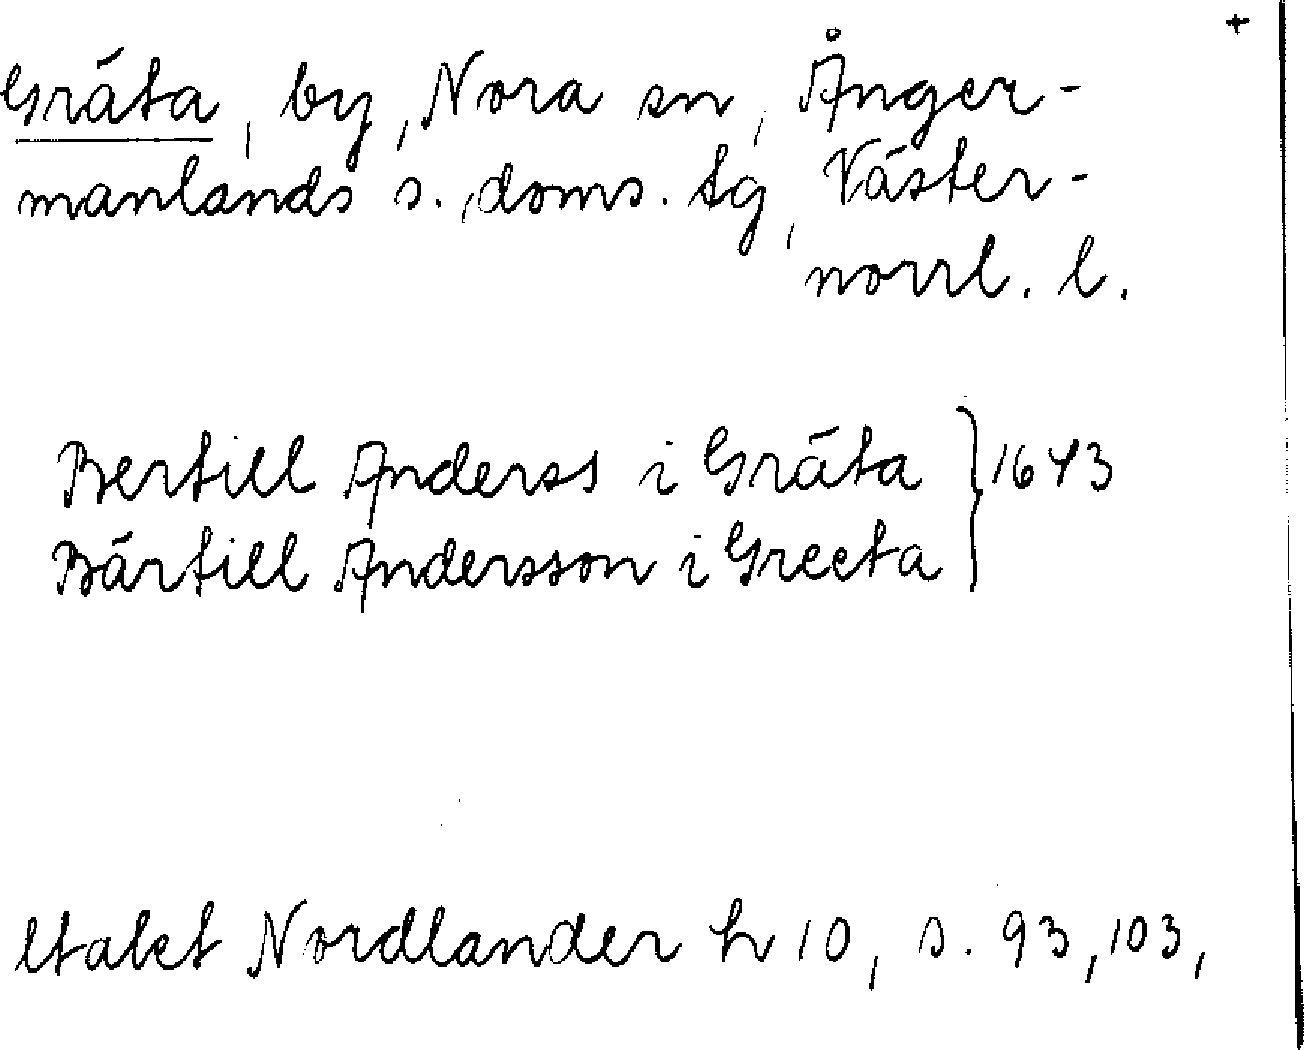 +
Gräta, by, Nora sn, Ånger-
manlands s., doms. tg, Väster-
norrl. l.
Bertill Anderss i Gräta } 1643
Bärtill Andersson i Greeta
ltalet Nordlander h 10, s. 93, 103,